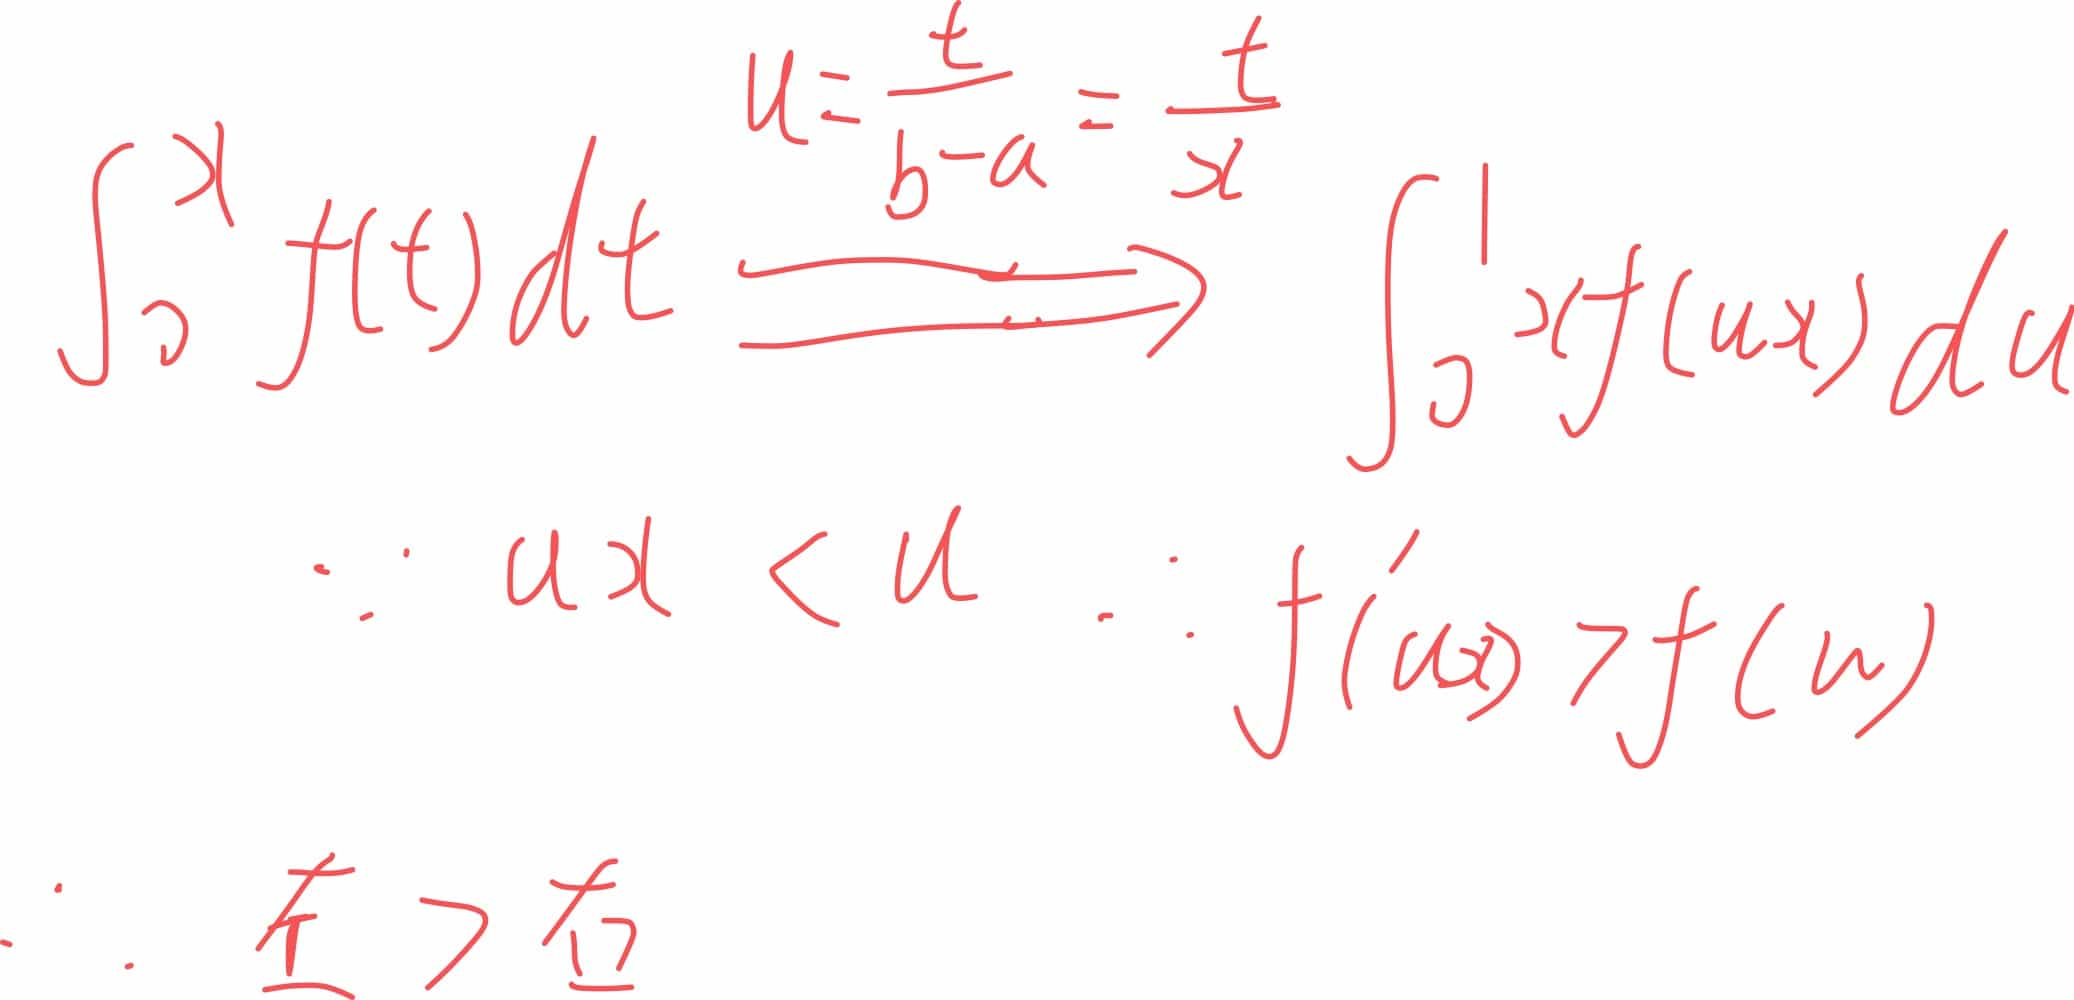 ∫₀ˣ f(t)dt ⟹ (u = t/(b-a) = t/x) ∫₀¹ xf(ux)du
∵ ux < u ∴ f(ux) > f(u)
∴ 左 > 右